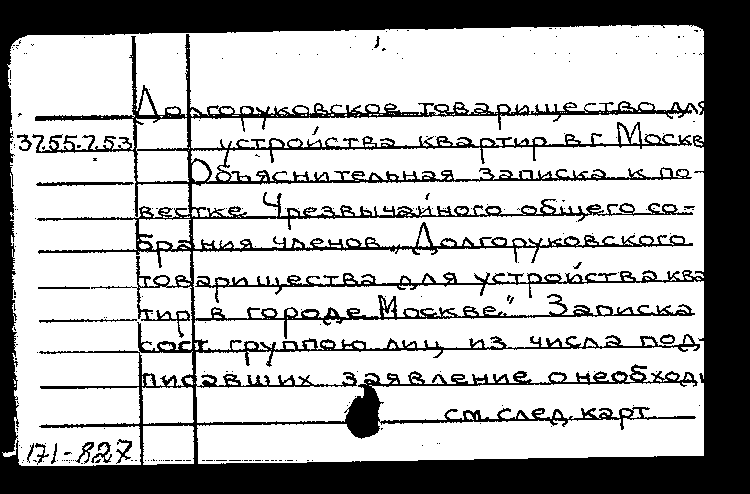 Долгоруковское товарищество для
37.55.7.53 устройства квартир в г. Москв
Объяснительная записка к по-
вестке Чрезвычайного общего со-
брания членов „Долгоруковского
товарищества для устройства ква
тир в городе Москве." Записка
сост. группою лиц из числа под-
писавших заявление о необход
см. след. карт.
171-827